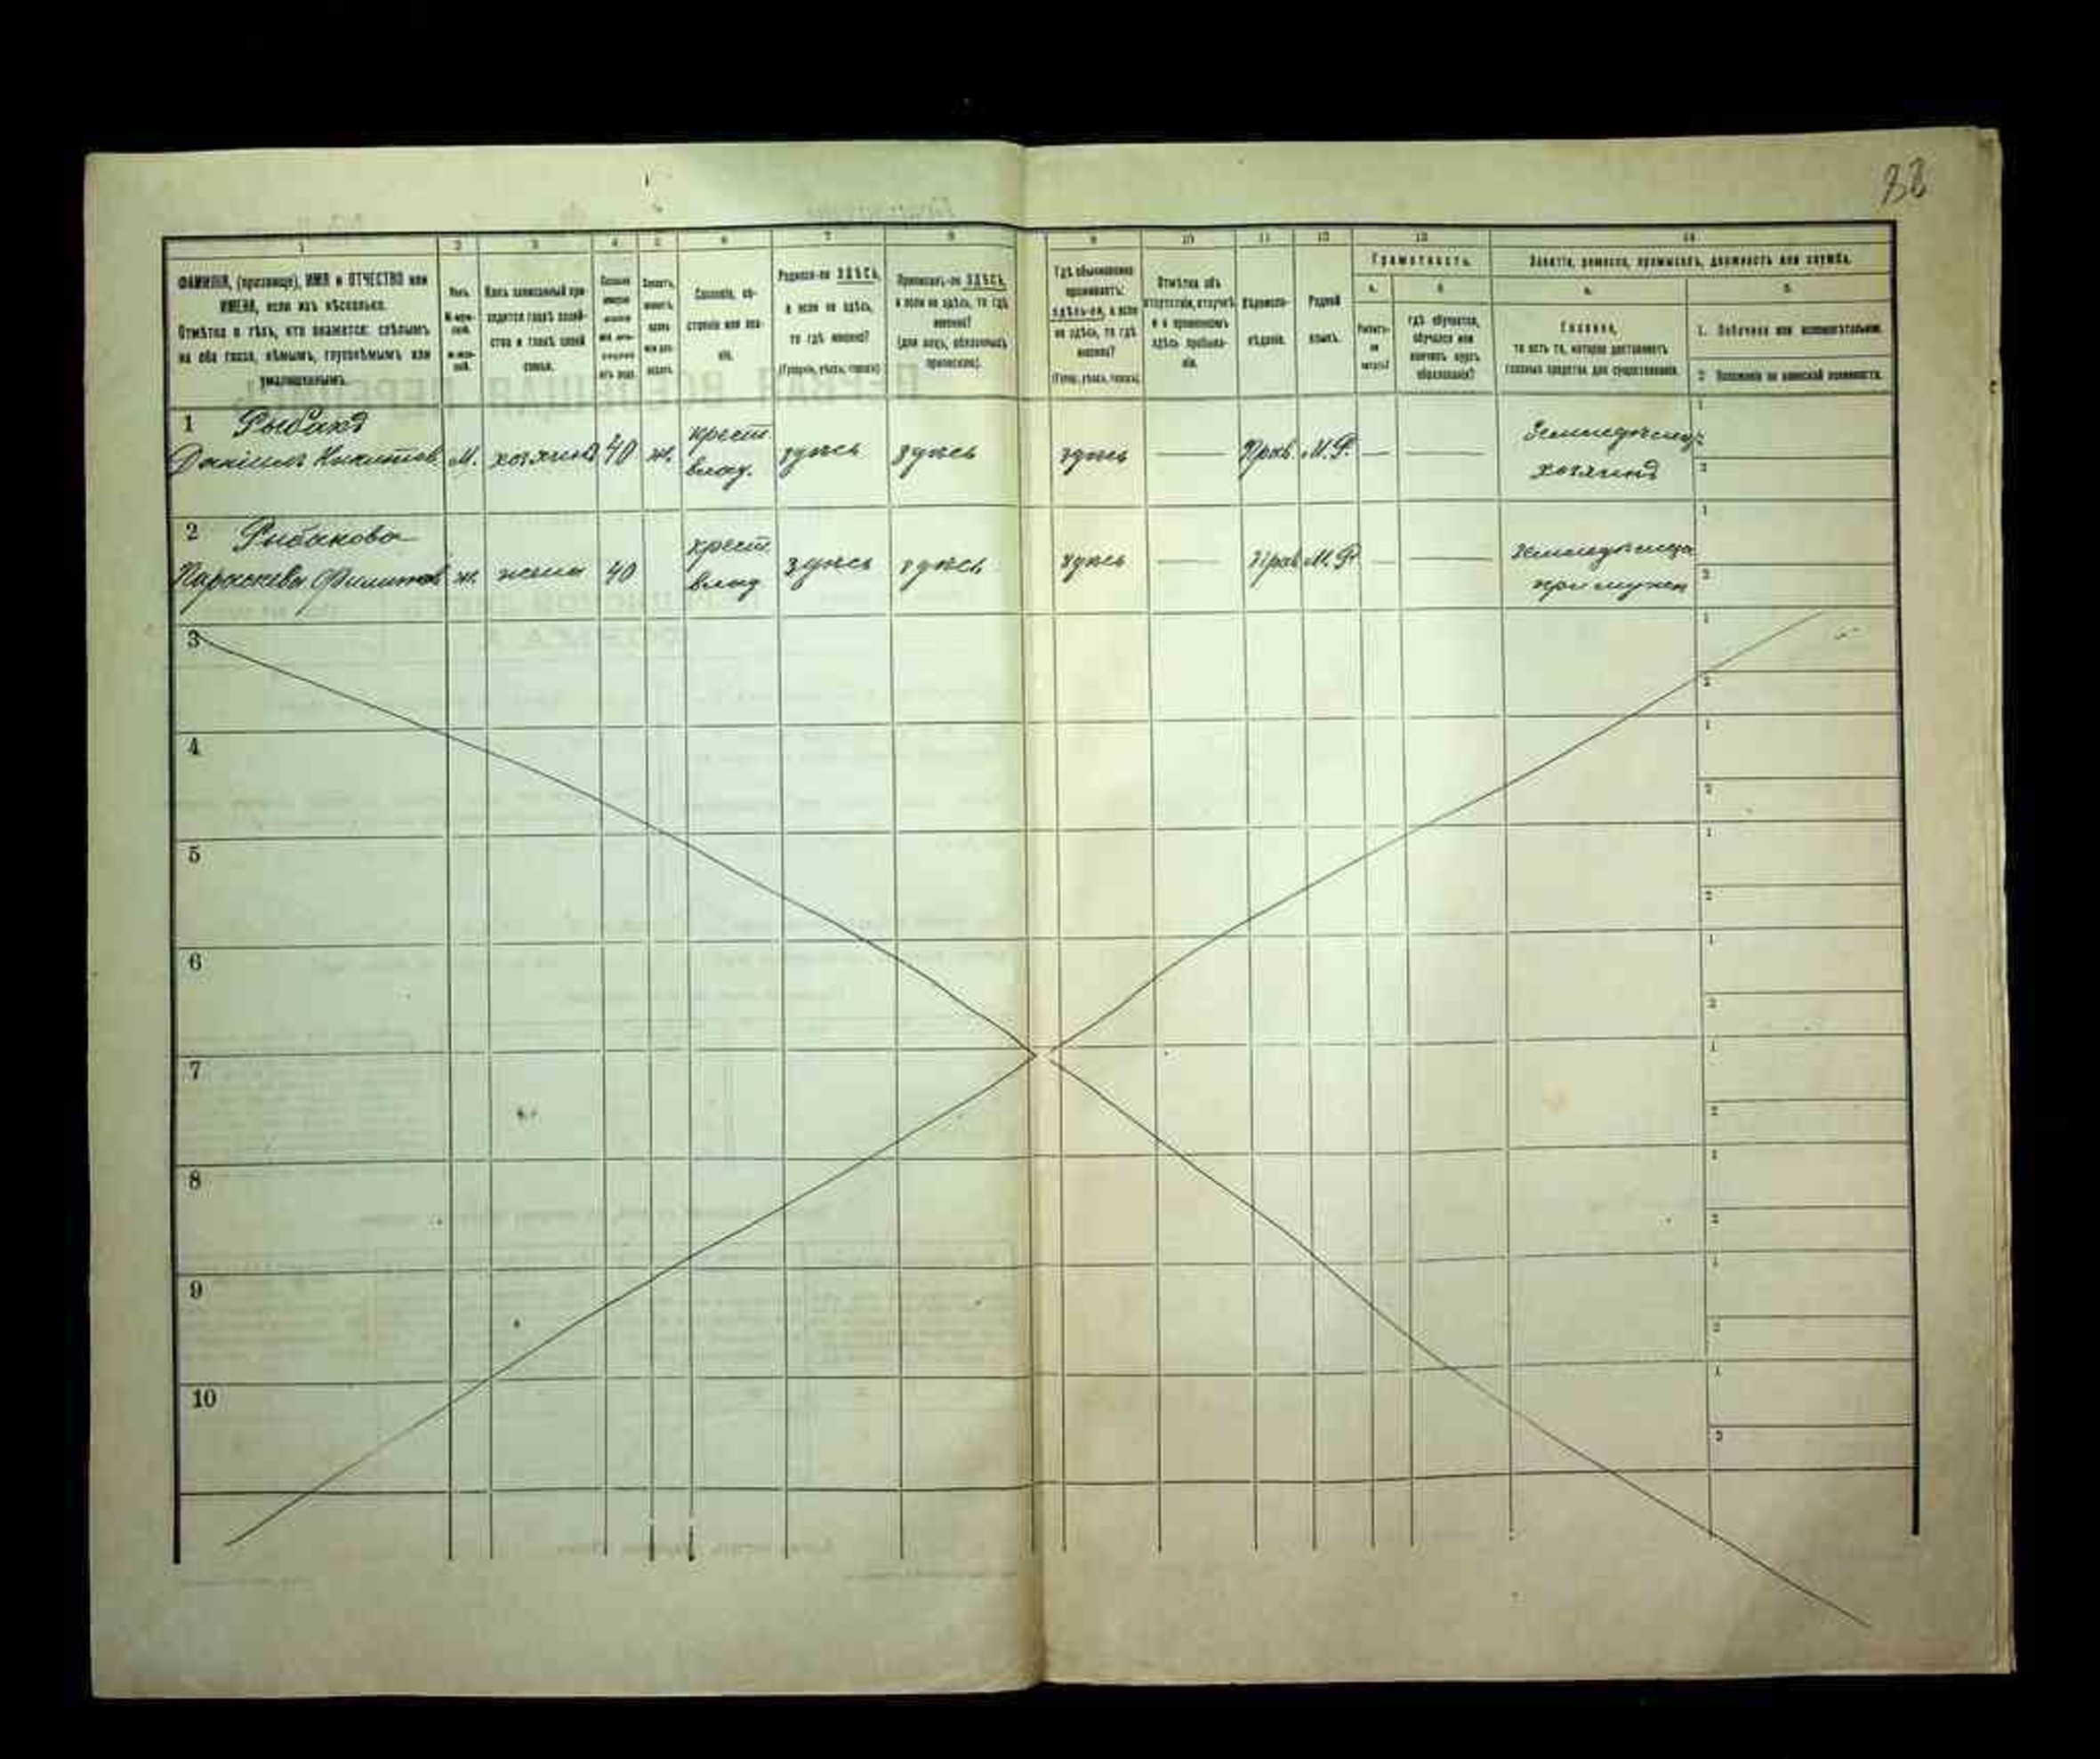 88
1 2 3 4 5 6 7 8 9 10 11 12 13 14
ФАМИЛІЯ, (прозвище), ИМЯ и ОТЧЕСТВО или
ИМЕНА, если ихъ нѣсколько.
Отмѣтка о тѣхъ, кто окажется: слѣпымъ
на оба глаза, нѣмымъ, глухонѣмымъ или
умалишеннымъ.
Полъ.
М-муж-
ской.
Ж-жен-
скій.
Какъ записанный при-
ходится главѣ хозяй-
ства и главѣ своей
семьи.
Сословіе, со-
стояніе или зва-
ніе.
Родился-ли ЗДѢСЬ,
а если не здѣсь,
то гдѣ именно?
(Губернія, уѣздъ, городъ)
Приписанъ-ли ЗДѢСЬ,
а если не здѣсь, то гдѣ
именно?
(для лицъ, обязанныхъ
припискою).
Гдѣ обыкновенно
проживаетъ:
здѣсь-ли, а если
не здѣсь, то гдѣ
именно?
(Губер., уѣздъ, городъ)
Отмѣтка объ
отсутствіи, отлучкѣ
и о временномъ
здѣсь пребыва-
ніи.
Вѣроиспо-
вѣданіе.
Родной
языкъ.
Грамотность.
а. б.
Умѣетъ-
ли
читать?
гдѣ обучается,
обучался или
кончилъ курсъ
образованія?
Занятіе, ремесло, промыселъ, должность или служба.
а. б.
Главное,
то есть то, которое доставляетъ
главныя средства для существованія.
1. Побочное или вспомогательное.
2. Положеніе по воинской повинности.
1 Рыбаковъ
Даніилъ Никитовъ М. хозяинъ 40 ж. крест. влад. здѣсь здѣсь здѣсь — Прав. М.Р. — — Земледѣлецъ хозяинъ
2 Рыбакова
Параскева Филипова ж. жена 40 крест. влад. здѣсь здѣсь здѣсь — Прав. М.Р. — — Земледѣлица при мужѣ
3
4
5
6
7
8
9
10